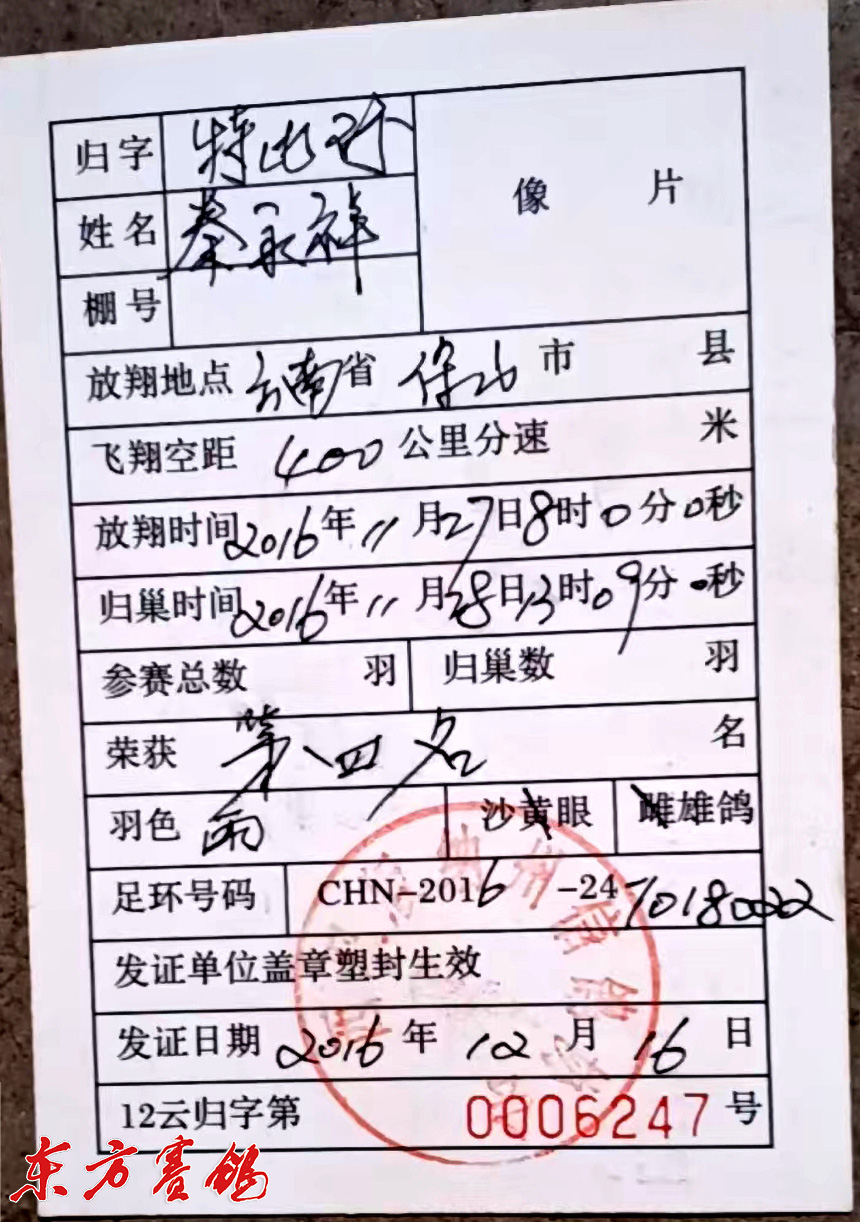 归字 特比环
像 片
姓名 秦永祥
棚号
放翔地点 云南省 保山 市 县
飞翔空距 400 公里分速 米
放翔时间 2016年 11 月27日8时0分0秒
归巢时间 2016年 11 月28日13时09分0秒
参赛总数 羽 归巢数 羽
荣获 第四名 名
羽色 雨 沙黄眼 雌雄鸽
足环号码 CHN-2016-24 7018022
发证单位盖章塑封生效
发证日期 2016 年 12 月 16 日
12云归字第 0006247 号
东方赛鸽